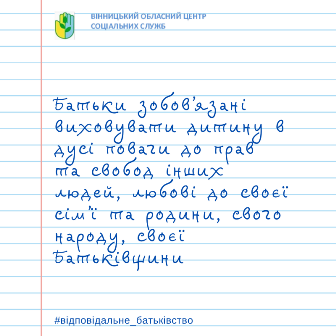 ВІННИЦЬКИЙ ОБЛАСНИЙ ЦЕНТР
СОЦІАЛЬНИХ СЛУЖБ
Батьки зобов'язані
виховувати дитину в
дусі поваги до прав
та свобод інших
людей, любові до своєї
сім'ї та родини, свого
народу, своєї
Батьківщини
#відповідальне_батьківство